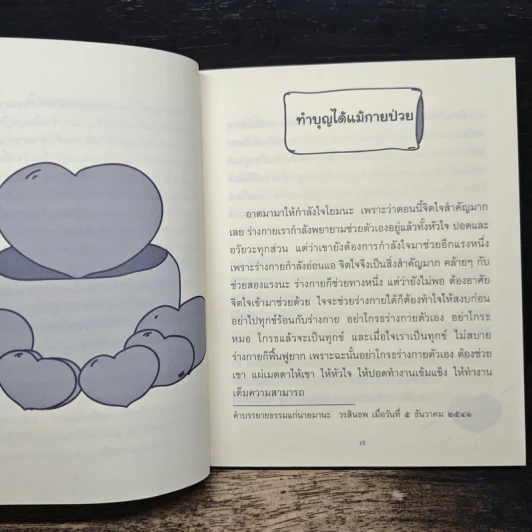 ทำบุญได้แม้กายป่วย
อาตมามาให้กำลังใจโยมนะ เพราะว่าตอนนี้จิตใจสำคัญมาก
เลย ร่างกายเรากำลังพยายามช่วยตัวเองอยู่แล้วทั้งหัวใจ ปอดและ
อวัยวะทุกส่วน แต่ว่าเขายังต้องการกำลังใจมาช่วยอีกแรงหนึ่ง
เพราะร่างกายกำลังอ่อนแอ จิตใจจึงเป็นสิ่งสำคัญมาก คล้ายๆ กับ
ช่วยสองแรงนะ ร่างกายก็ช่วยทางหนึ่ง แต่ว่ายังไม่พอ ต้องอาศัย
จิตใจเข้ามาช่วยด้วย ใจจะช่วยร่างกายได้ก็ต้องทำใจให้สงบก่อน
อย่าไปทุกข์ร้อนกับร่างกาย อย่าโกรธร่างกายตัวเอง อย่าโกรธ
หมอ โกรธแล้วจะเป็นทุกข์ และเมื่อใจเราเป็นทุกข์ ไม่สบาย
ร่างกายก็ฟื้นฟูยาก เพราะฉะนั้นอย่าโกรธร่างกายตัวเอง ต้องช่วย
เขา แผ่เมตตาให้เขา ให้หัวใจ ให้ปอดทำงานเข้มแข็ง ให้ทำงาน
เต็มความสามารถ
คำบรรยายธรรมแก่นายมานะ วรสินธพ เมื่อวันที่ ๕ ธันวาคม ๒๕๔๑
๗